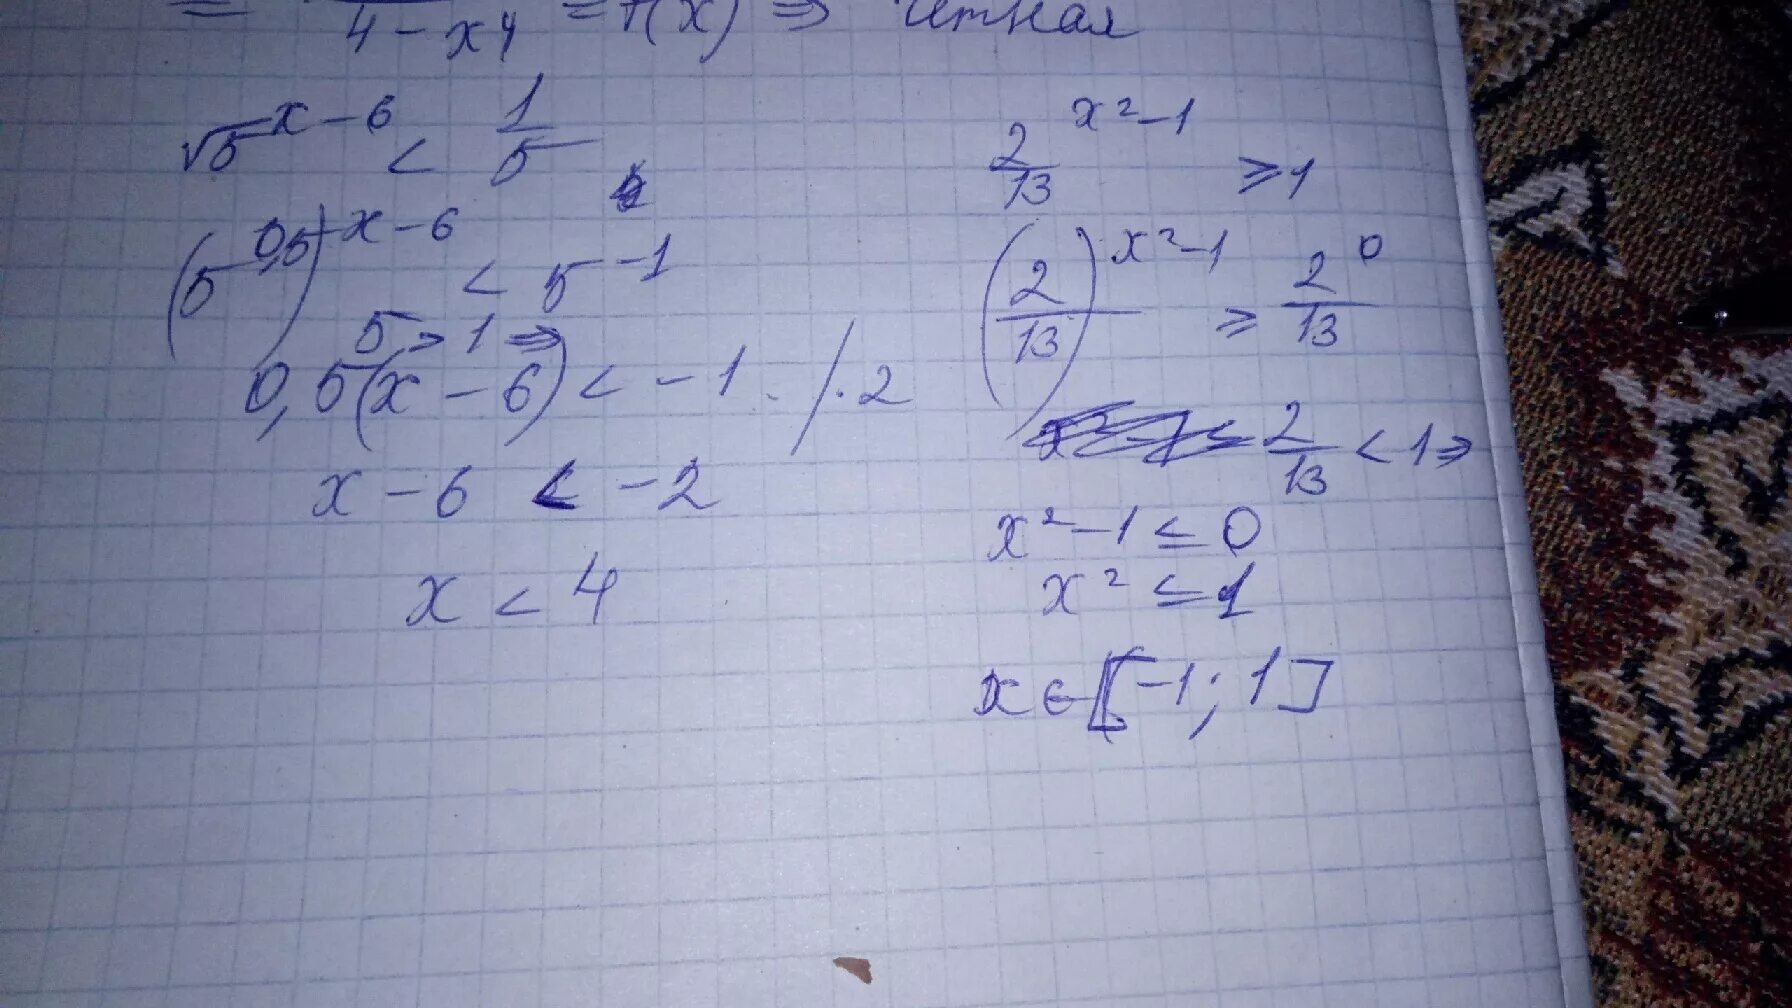 = 4 - x⁴ = f(x) ⇒ четная
√5^(x-6) < 1/5
(5^0,5)^(x-6) < 5^-1
5 > 1 ⇒
0,5(x - 6) < -1 /·2
x - 6 < -2
x < 4
2/13^(x²-1) ≥ 1
(2/13)^(x²-1) ≥ 2/13^0
2/13 < 1 ⇒
x² - 1 ≤ 0
x² ≤ 1
x ∈ [-1; 1]